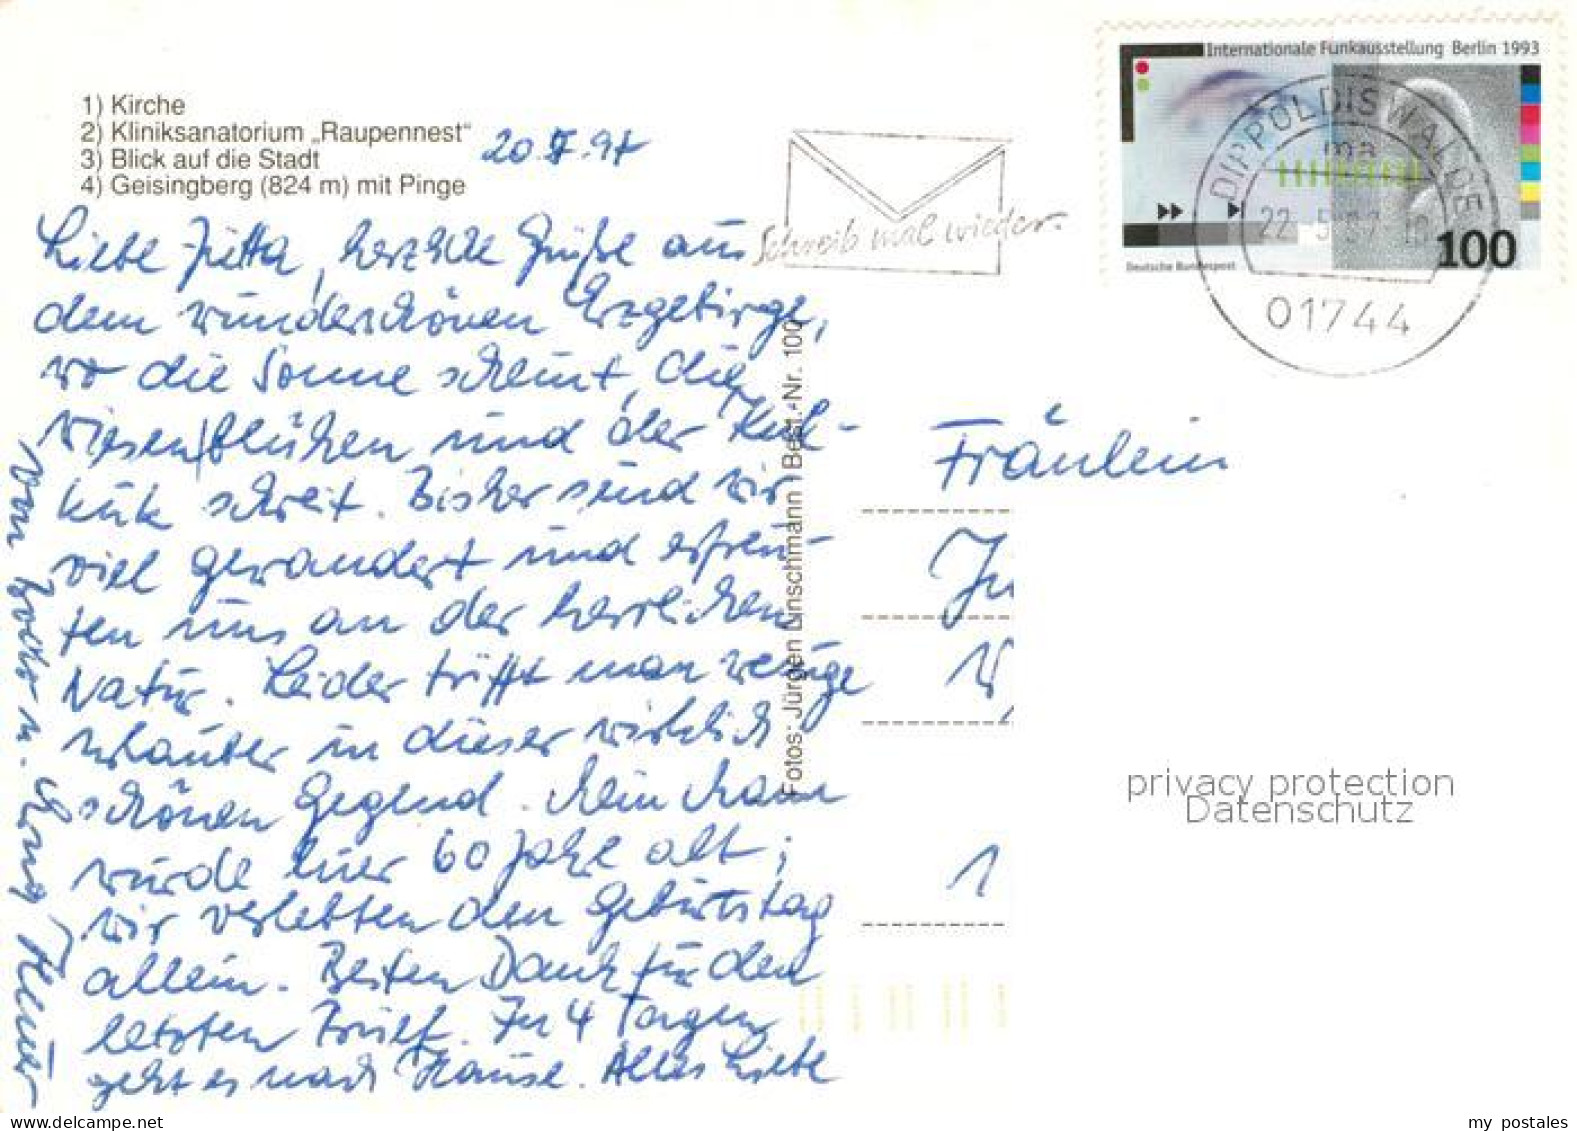 1) Kirche
2) Kliniksanatorium „Raupennest"
3) Blick auf die Stadt
4) Geisingberg (824 m) mit Pinge
20.5.97
Liebe Jutta, herzliche Grüße aus
dem wunderschönen Erzgebirge,
wo die Sonne scheint, die
Wiesen blühen und der Kuk-
kuk schreit. Bisher sind wir
viel gewandert und erfreu-
ten uns an der herrlichen
Natur. Leider trifft man wenige
Urlauber in dieser wirklich
schönen Gegend. Mein Mann
wurde hier 60 Jahre alt;
wir verlebten den Geburtstag
allein. Besten Dank für den
letzten Brief. In 4 Tagen
geht es nach Hause. Alles Liebe
von
u.
Fotos: Jürgen Linschmann / Best.-Nr. 100
Schreib mal wieder.
Internationale Funkausstellung Berlin 1993
Deutsche Bundespost
100
DIPPOLDISWALDE
ma
22.-5.97-18
01744
Fräulein
Ju
W
1
privacy protection
Datenschutz
www.delcampe.net
my postales